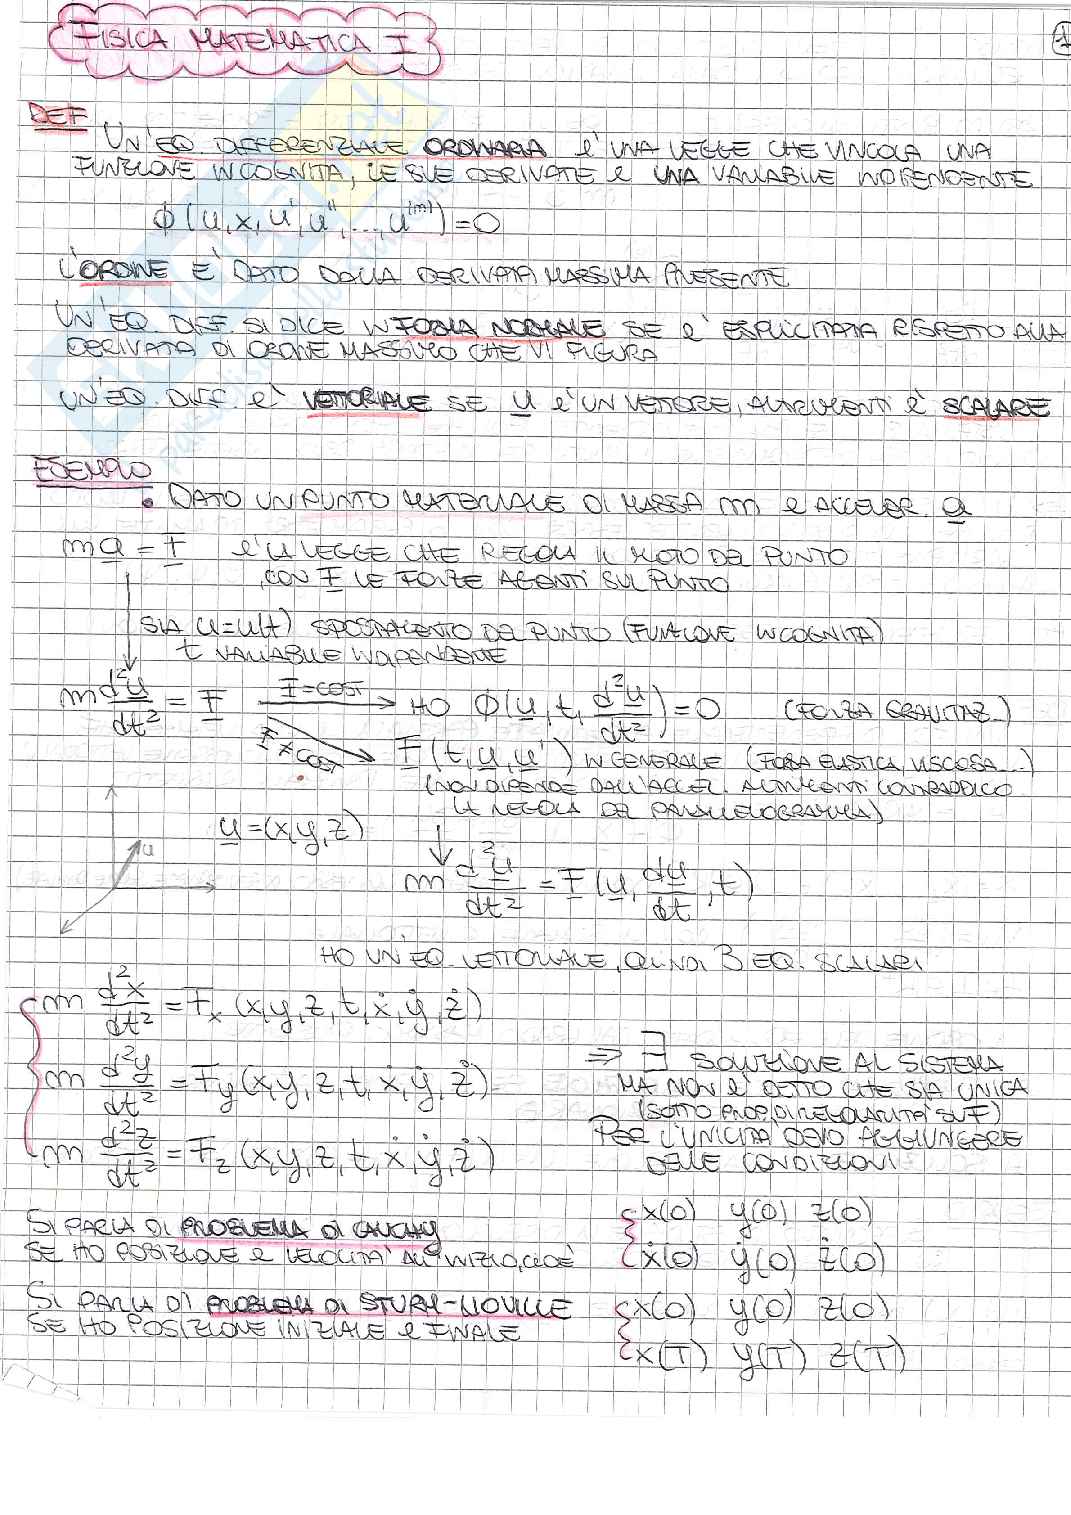 FISICA MATEMATICA I
1
DEF UN'EQ. DIFFERENZIALE ORDINARIA è UNA LEGGE CHE VINCOLA UNA
FUNZIONE INCOGNITA, LE SUE DERIVATE e UNA VARIABILE INDIPENDENTE
ϕ(u, x, u', u'', ..., u^(m)) = 0
L'ORDINE E' DATO DALLA DERIVATA MASSIMA PRESENTE
UN'EQ. DIFF SI DICE IN FORMA NORMALE SE è ESPLICITATA RISPETTO ALLA
DERIVATA DI ORDINE MASSIMO CHE VI FIGURA
UN'EQ. DIFF è VETTORIALE SE u è UN VETTORE, ALTRIMENTI è SCALARE
ESEMPIO
• DATO UN PUNTO MATERIALE DI MASSA m e ACCELER. a
ma = F è LA LEGGE CHE REGOLA IL MOTO DEL PUNTO
CON F LE FORZE AGENTI SUL PUNTO
SIA u=u(t) SPOSTAMENTO DEL PUNTO (FUNZIONE INCOGNITA)
t VARIABILE INDIPENDENTE
m d²u/dt² = F F=COST HO ϕ(u, t, d²u/dt²) = 0 (FORZA GRAVITAZ...)
F ≠ COST F(t, u, u') IN GENERALE (FORZA ELASTICA, VISCOSA...)
(NON DIPENDE DALL'ACCEL. ALTRIMENTI CONTRADDICO
LA REGOLA DEL PARALLELOGRAMMA)
u = (x, y, z)
u
m d²u/dt² = F(u, du/dt, t)
HO UN'EQ. VETTORIALE, QUINDI 3 EQ. SCALARI
m d²x/dt² = Fx (x, y, z, t, ẋ, ẏ, ż)
m d²y/dt² = Fy (x, y, z, t, ẋ, ẏ, ż)
m d²z/dt² = Fz (x, y, z, t, ẋ, ẏ, ż)
⇒ ∃ SOLUZIONE AL SISTEMA
MA NON è DETTO CHE SIA UNICA
(SOTTO PROP. DI REGOLARITA' SU F)
PER L'UNICITA' DEVO AGGIUNGERE
DELLE CONDIZIONI
SI PARLA DI PROBLEMA DI CAUCHY
SE HO POSIZIONE e VELOCITA' ALL'INIZIO, CIOE'
x(0) y(0) z(0)
ẋ(0) ẏ(0) ż(0)
SI PARLA DI PROBLEMA DI STURM-LIOUVILLE
SE HO POSIZIONE INIZIALE e FINALE
x(0) y(0) z(0)
x(T) y(T) z(T)